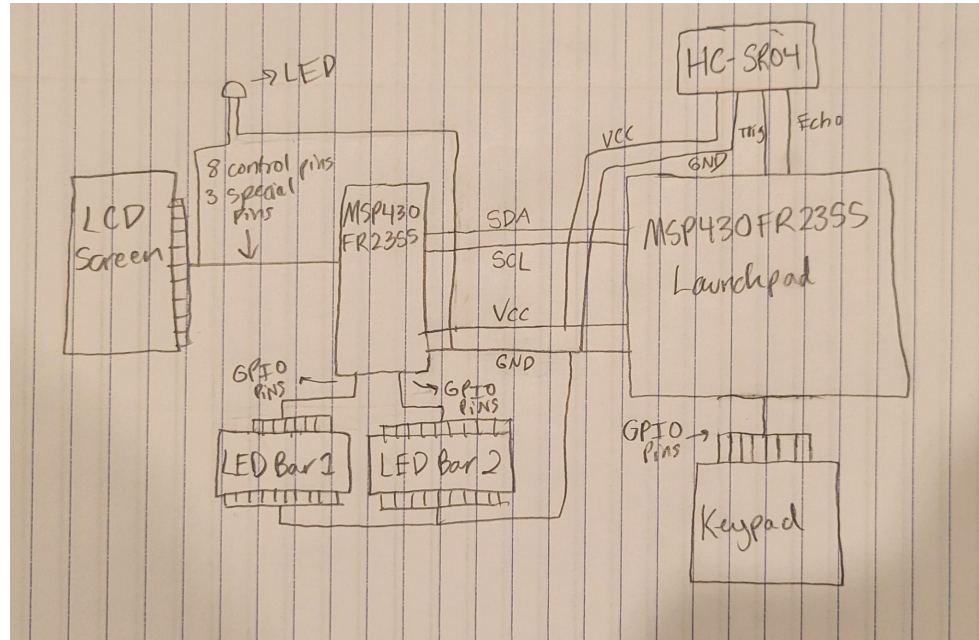 LED
HC-SR04
8 control pins
3 special
pins
LCD
Screen
MSP430
FR2355
SDA
SCL
VCC
GND
VCC
GND
Trig
Echo
MSP430FR2355
Launchpad
GPIO
PINS
GPIO
PINS
LED Bar 1
LED Bar 2
GPIO
Pins
Keypad